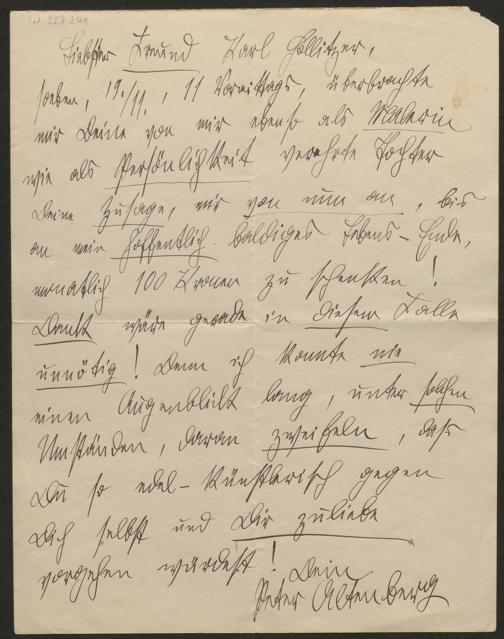 I.N. 227.241
Liebster Freund Karl Hollitzer,
soeben, 19./11., 11 Vormittags, überbrachte
mir Deine von mir ebenso als Malerin
wie als Persönlichkeit verehrte Tochter
Deine Zusage, mir von nun an, bis
an mein hoffentlich baldiges Lebens-Ende,
monatlich 100 Kronen zu schenken!
Dank wäre gerade in diesem Falle
unnötig! Denn ich konnte nie
einen Augenblick lang, unter solchen
Umständen, daran zweifeln, dass
Du so edel-künstlerisch gegen
Dich selbst und Dir zuliebe
vorgehen würdest!
Dein
Peter Altenberg